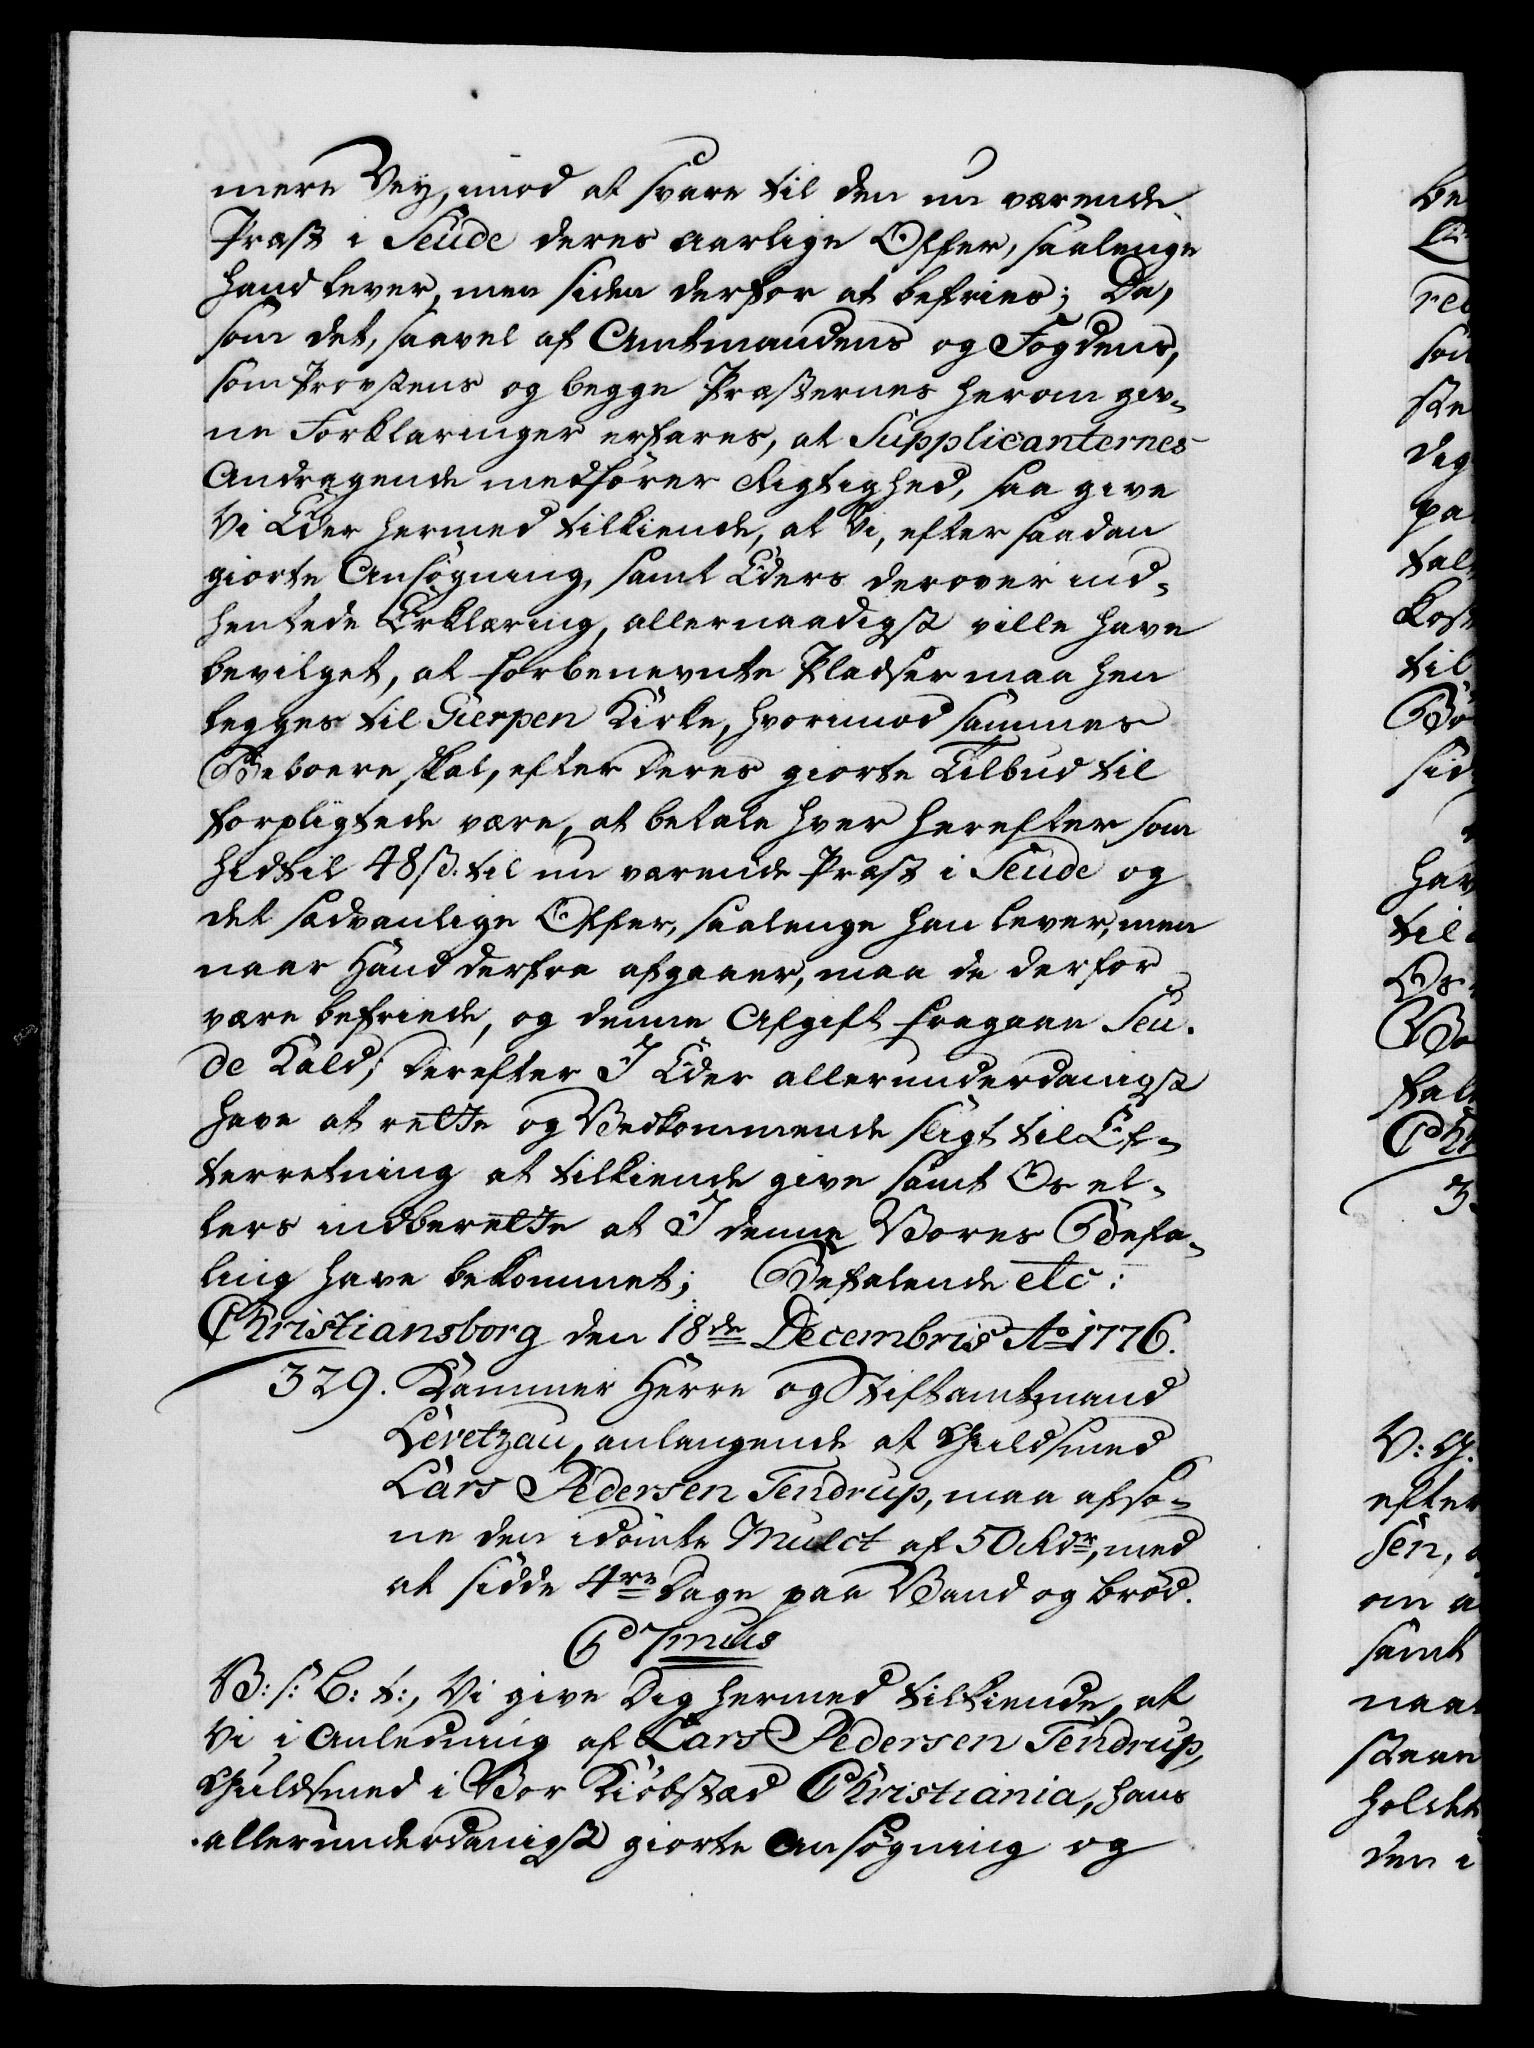 mere Vey, imod at svare til den nu værende
Præst i Seude deres aarlige Offer, saalenge
hand lever, men siden derfor at befries; Da,
som det, saavel af Amtmandens og Fogdens,
som Provstens og begge Præsternes herom giv-
ne Forklaringer erfares, at Supplicanternes
Andragende medfører Rigtighed, saa give
Vi Eder hermed tilkiende, at Vi, efter saadan
giorte Ansøgning, samt Eders derover ind-
hentede Erklæring, allernaadigst ville have
bevilget, at forbenevnte Pladser maa hen
legges til Gierpen Kirke, hvorimod sammes
Beboere skal, efter deres giorte Tilbud til
forpligtede være, at betale hver herefter som
hidtil 48 ß. til nu værende Præst i Seude og
det sædvanlige Offer, saalenge han lever, men
naar Hand derfra afgaaer, maa de derfor
være befriede, og denne Afgift fragaae Seu-
de Kald; Derefter I Eder allerunderdanigst
have at rette og Vedkommende sligt til Ef-
terretning at tilkiende give samt Os el-
lers indberette at I denne Vores Befa-
ling have bekommet; Befalende etc:
Christiansborg den 18de Decembris Ao 1776.
329. Kammer Herre og Stiftamtmand
Levetzau, anlangende at Guldsmed
Lars Pedersen Tendrup, maa afso-
ne den idømte Mulct af 50 Rdr, med
at sidde 4re Dage paa Vand og Brød.
C 7mus
V: S: G: t:, Vi give Dig hermed tilkiende, at
Vi i Anledning af Lars Pedersen Tendrup,
Guldsmed i Vor Kiøbstæd Christiania, hans
allerunderdanigst giorte Ansøgning og